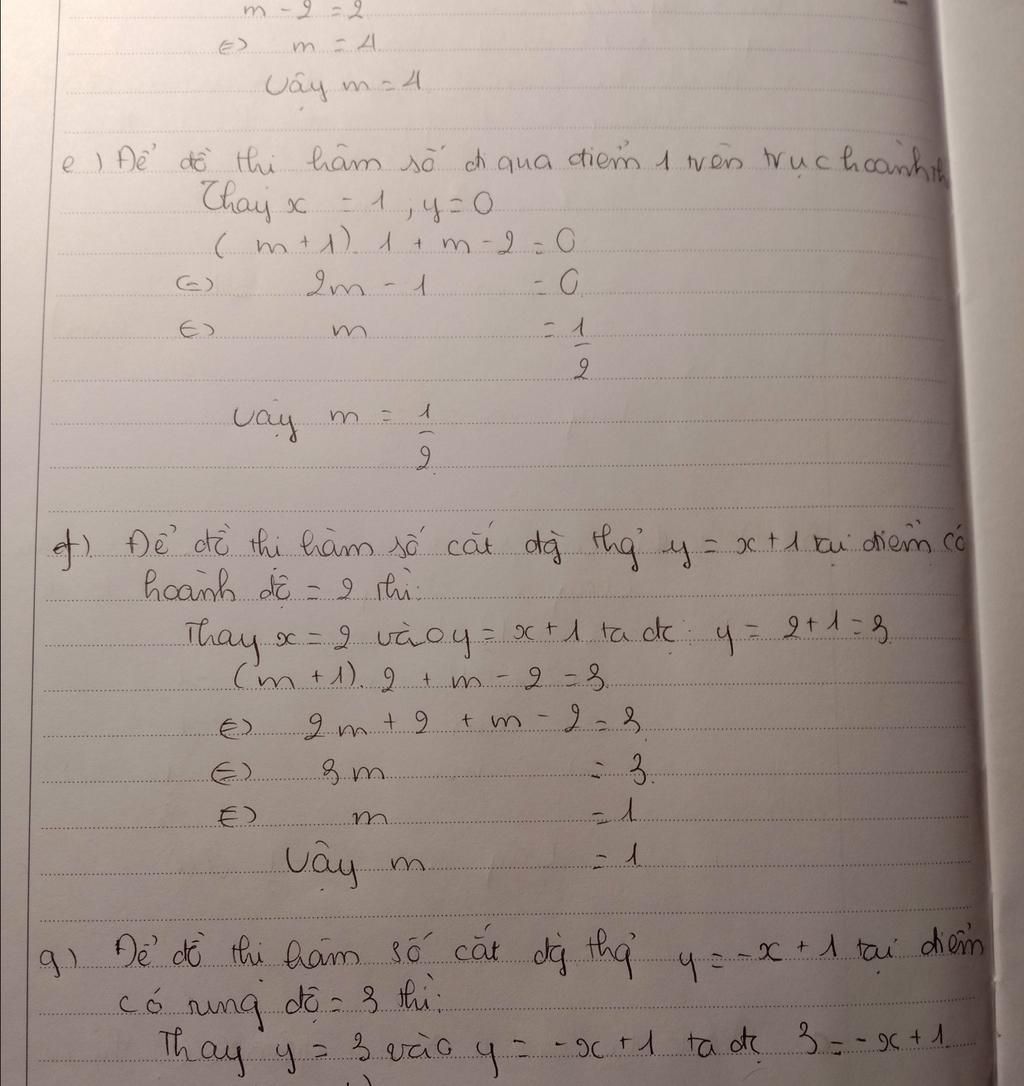 m - 2 = 2
⇔ m = 4
Vậy m = 4
e) Để đồ thi hàm số đi qua điểm 1 trên trục hoành th
Thay x = 1, y = 0
(m+1). 1 + m - 2 = 0
⇔ 2m - 1 = 0
⇔ m = 1/2
Vậy m = 1/2
f) Để đồ thi hàm số cắt đg thg y = x + 1 tại điểm có
hoành độ = 2 thì:
Thay x = 2 vào y = x + 1 ta đc: y = 2 + 1 = 3
(m + 1). 2 + m - 2 = 3
⇔ 2m + 2 + m - 2 = 3
⇔ 3m = 3
⇔ m = 1
Vậy m = 1
g) Để đồ thi hàm số cắt đg thg y = -x + 1 tại điểm
có tung độ = 3 thì:
Thay y = 3 vào y = -x + 1 ta đc 3 = -x + 1